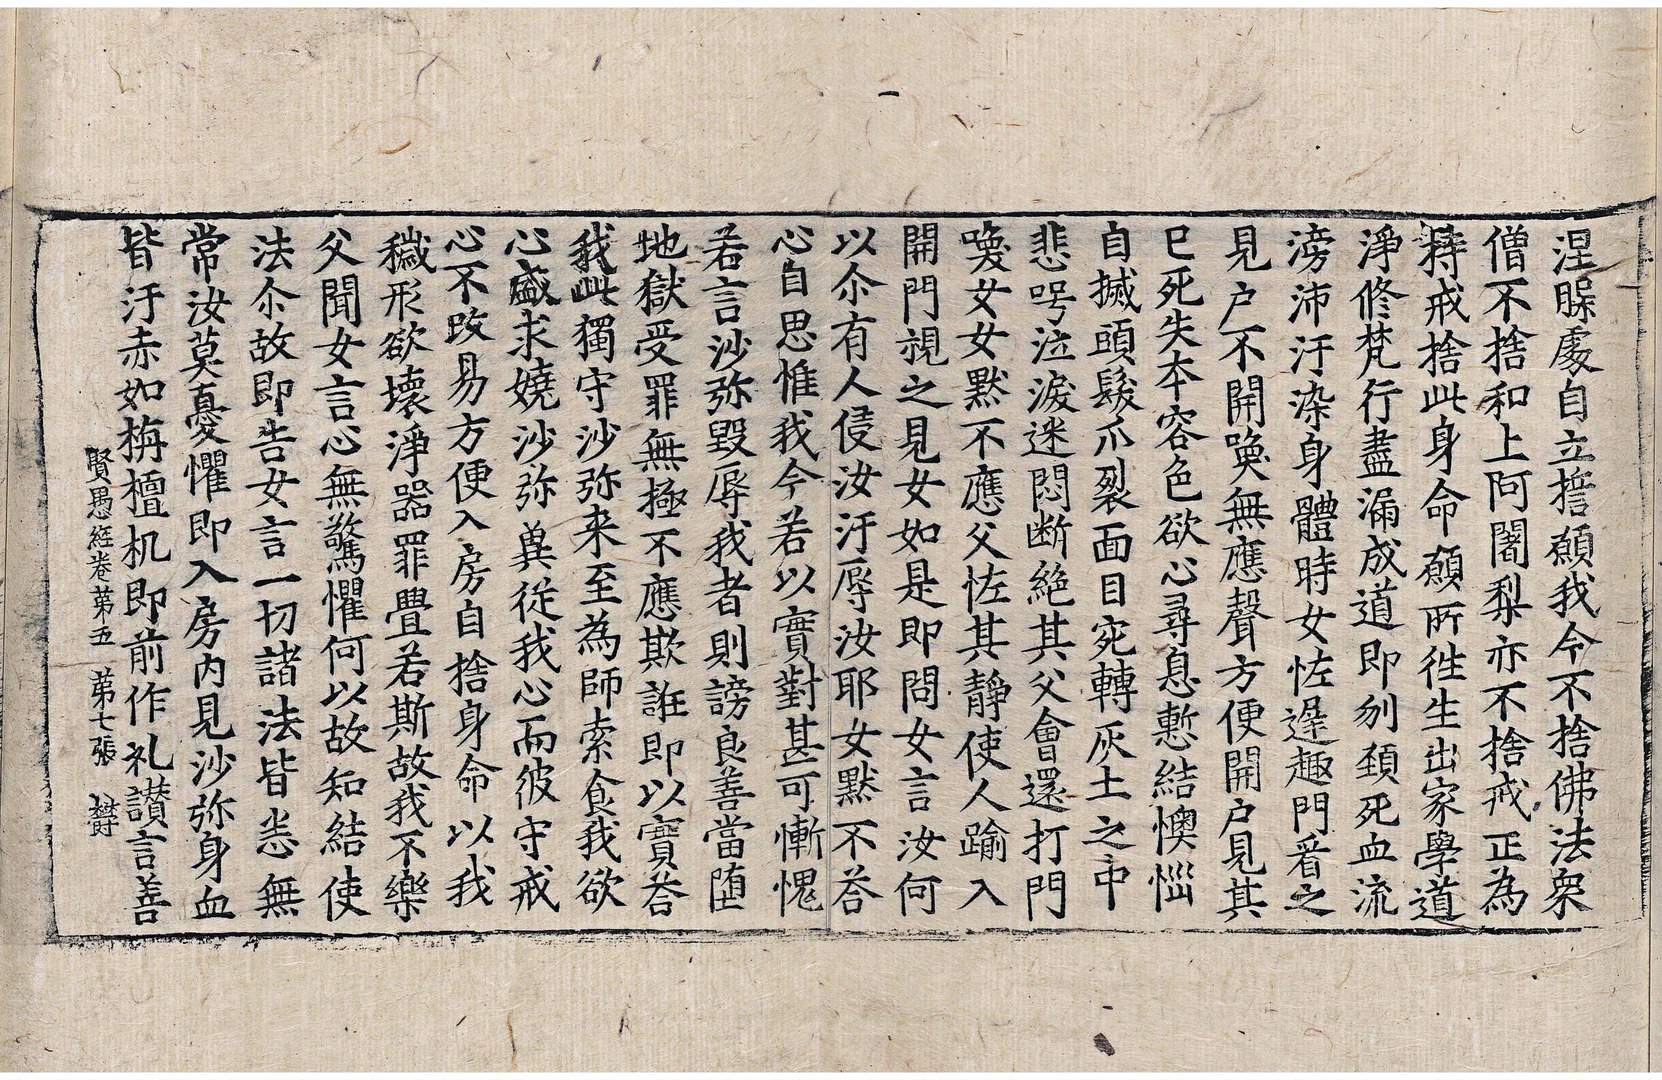 涅槃處自立誓願我今不捨佛法衆
僧不捨和上阿闍梨亦不捨戒正為
持戒捨此身命願所往生出家學道
淨修梵行盡漏成道即刎頚死血流
滂沛汙染身體時女恠遲趣門看之
見户不開喚無應聲方便開户見其
已死失本容色欲心尋息慙結懊惱
自搣頭髮爪裂面目宛轉灰土之中
悲呺泣淚迷悶断絶其父會還打門
喚女女默不應父恠其静使人踰入
開門視之見女如是即問女言汝何
以尒有人侵汝汙辱汝耶女默不荅
心自思惟我今若以實對甚可慚愧
若言沙弥毀辱我者則謗良善當堕
地獄受罪無極不應欺誑即以實荅
我此獨守沙弥来至為師索食我欲
心盛求嬈沙弥兾從我心而彼守戒
心不改易方便入房自捨身命以我
穢形欲壞淨器罪舋若斯故我不樂
父聞女言心無驚懼何以故知結使
法尒故即告女言一切諸法皆悉無
常汝莫憂懼即入房内見沙弥身血
皆汙赤如栴檀机即前作礼讃言善
賢愚経卷第五　第七張　欝